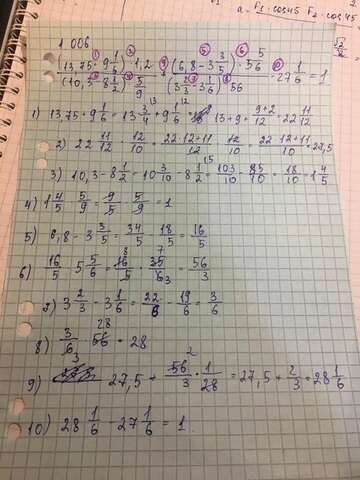 a = F₁ · cos45 F₂ cos45
1.006
(13,75 + 9 1/6) · 1,2 / (10,3 - 8 1/2) · 5/9 + (6,8 - 3 3/5) · 5 5/6 / (3 2/3 - 3 1/6) · 56 - 27 1/6 = 1
1) 13,75 + 9 1/6 = 13 3/4 + 9 1/6 = 13 + 9 + (9+2)/12 = 22 11/12
2) 22 11/12 · 12/10 = (22·12+11)/12 · 12/10 = (22·12+11)/10 = 27,5
3) 10,3 - 8 1/2 = 10 3/10 - 8 1/2 = 103/10 - 85/10 = 18/10 = 1 4/5
4) 1 4/5 · 5/9 = 9/5 · 5/9 = 1
5) 6,8 - 3 3/5 = 34/5 - 18/5 = 16/5
6) 16/5 · 5 5/6 = 16/5 · 35/6 = 56/3
7) 3 2/3 - 3 1/6 = 22/6 - 19/6 = 3/6
8) 3/6 · 56 = 28
9) 27,5 + 56/3 · 1/28 = 27,5 + 2/3 = 28 1/6
10) 28 1/6 - 27 1/6 = 1.